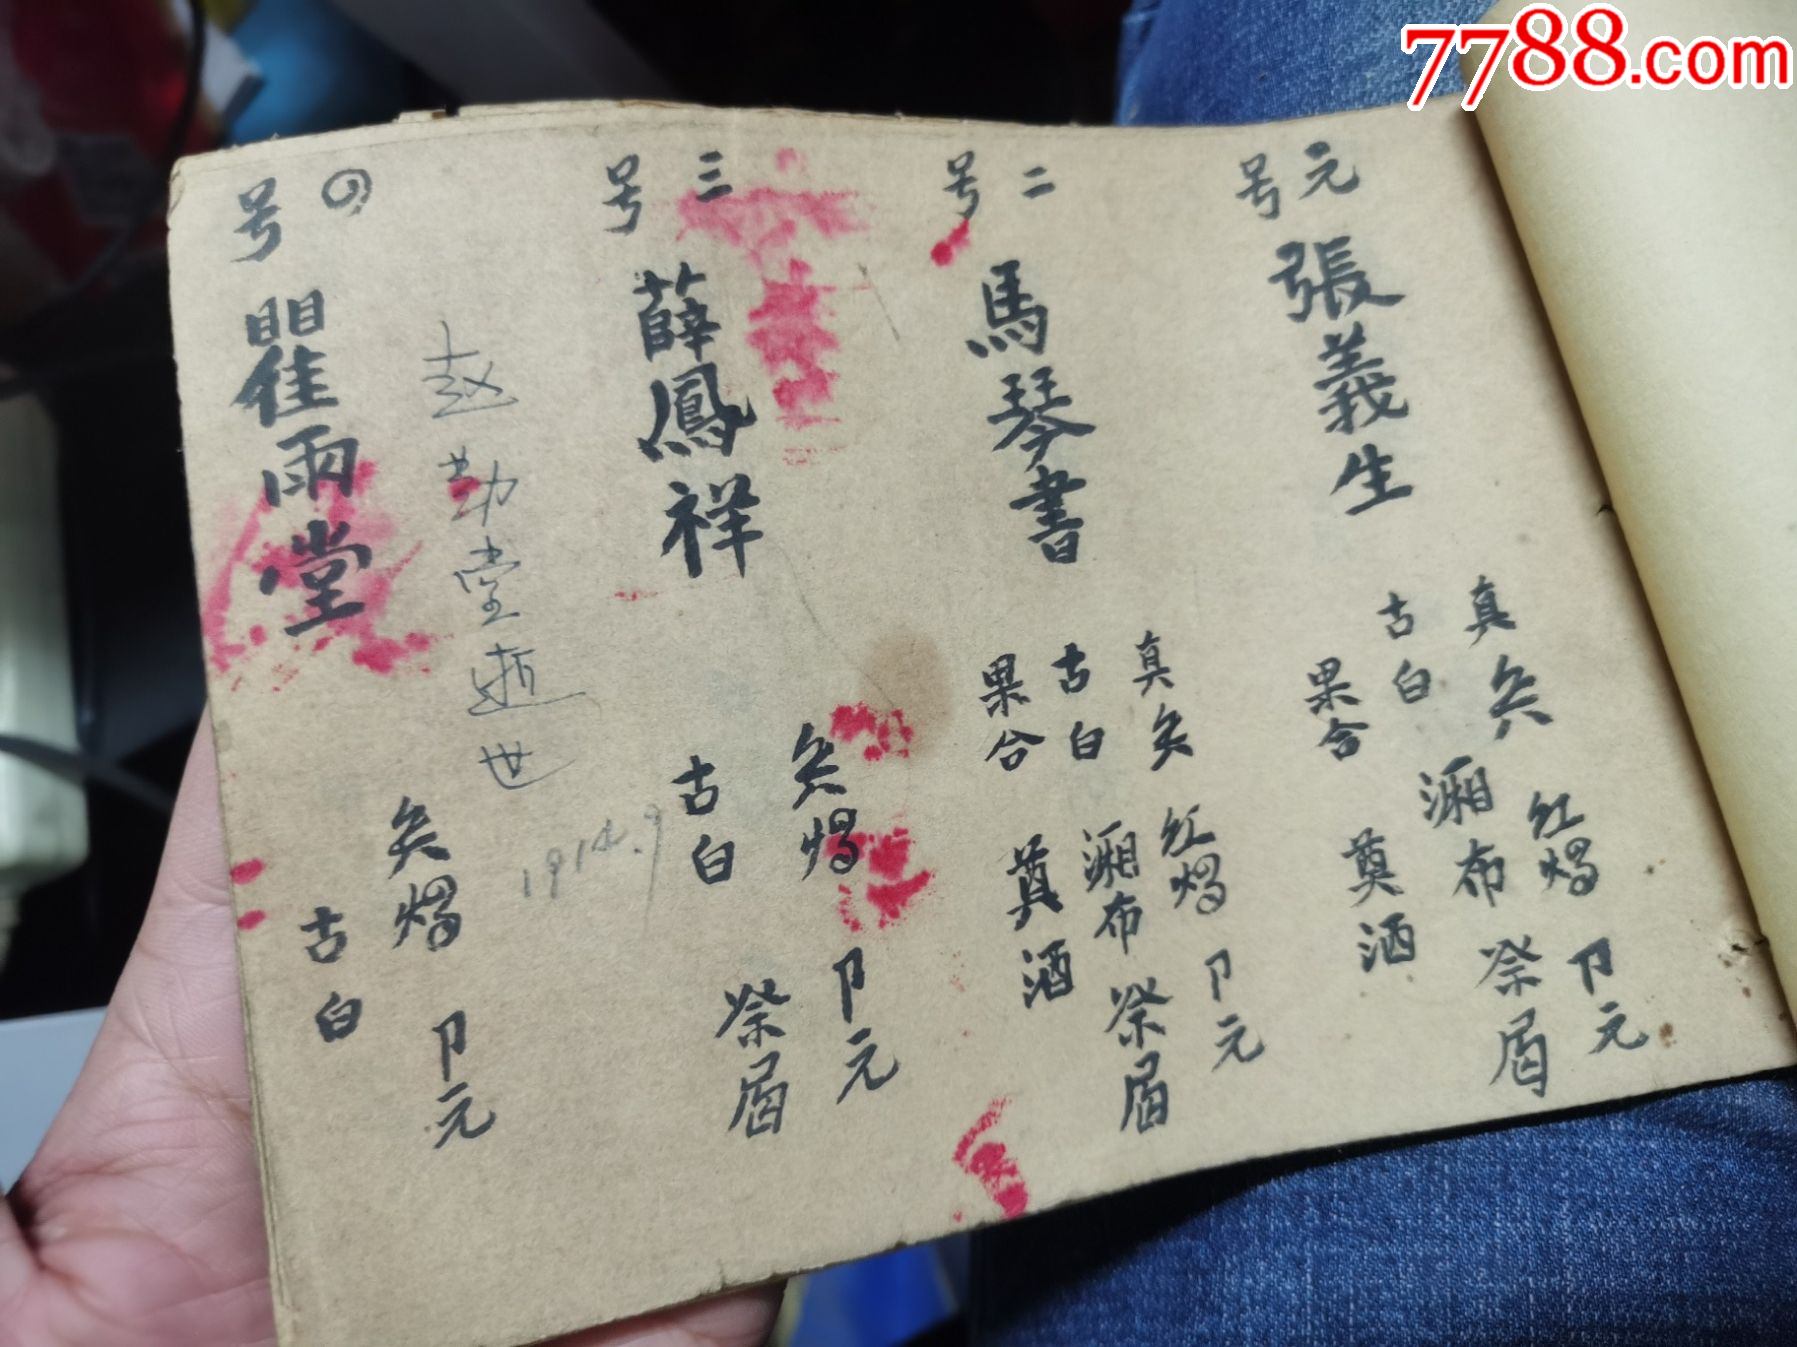 7788.com
元号
張義生
真矣 紅燭 卩元
古白 湘布 祭眉
果合 奠酒
二号
馬琴書
真矣 紅燭 卩元
古白 湘布 祭眉
果合 奠酒
三号
薛鳳祥
矣燭 卩元
古白 祭眉
赵勤堂逝世
1914.9
号
瞿雨堂
矣燭 卩元
古白